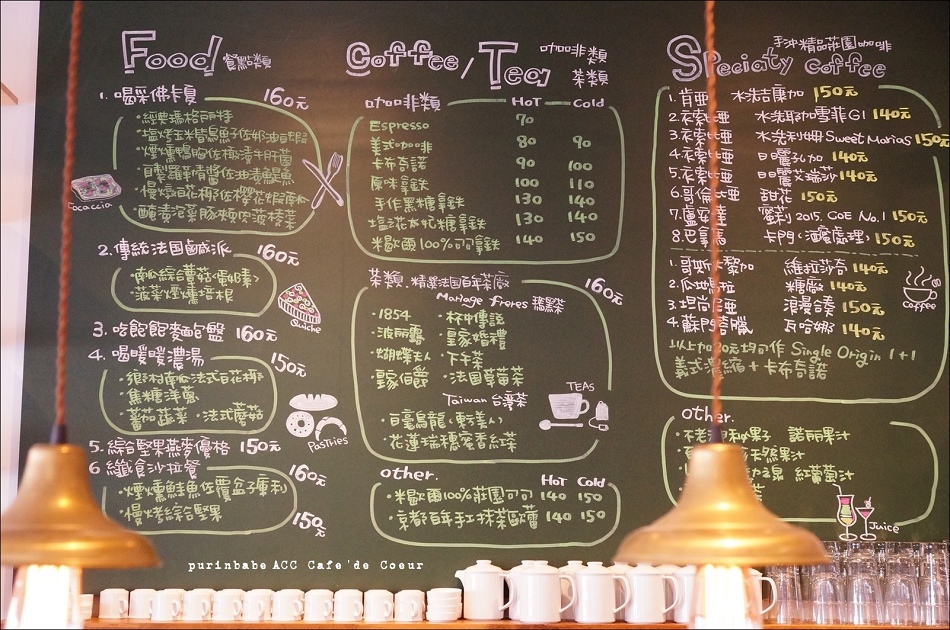 Food 餐點類
1. 喝采佛卡夏 160元
Focaccia
2. 傳統法国鹹派 160元
・南瓜綜合蘑菇
・菠菜煙燻培根
Quiche
3. 吃飽飽麵包盤 160元
4. 喝暖暖濃湯 150元
・焦糖洋蔥
・蕃茄蔬菜・法式蘑菇
Pastries
5. 綜合堅果燕麥優格 150元
6 纖食沙拉餐 160元
・煙燻鮭魚佐覆盆子
・慢烤綜合堅果 150元
Coffee/Tea 咖啡非類 茶類
咖啡非類 HoT Cold
Espresso 70
美式咖啡 80 90
卡布奇諾 90 100
原味拿鐵 100 110
手作黑糖拿鐵 130 140
鹽之花太妃糖拿鐵 130 140
米歇爾100%可可拿鐵 140 150
茶類 精選法国百年茶廠 160元
Mariage freres 瑪黑茶
・1854 ・杯中傳說
・波麗露 ・皇家婚禮
・蝴蝶夫人 ・下午茶
・皇家伯爵 ・法国草莓茶
Taiwan 台灣茶
・白毫烏龍(東方美人)
・花蓮瑞穗蜜香紅茶
TEAS
other. Hot Cold
・米歇爾100%莊園可可 140 150
・京都百年手工抹茶歐蕾 140 150
Speciaty coffee 手沖精品莊園咖啡
1. 肯亞 水洗吉庫加 150元
2. 衣索比亞 水洗耶加雪菲G1 140元
3. 衣索比亞 水洗利姆 Sweet Marias 150元
4. 衣索比亞 日曬孔加 140元
5. 衣索比亞 日曬艾瑞莎 140元
6. 哥倫比亞 甜花 150元
7. 盧安達 蜜莉 2015. CoE No.1 150元
8. 巴拿馬 卡門(酒處理) 150元
1. 哥斯大黎加 維拉莎奇 140元
2. 瓜地馬拉 糖廠 140元
3. 坦尚尼亞 浪漫合奏 150元
4. 蘇門答臘 瓦哈娜 140元
以上加30元均可作 Single Origin 1+1
義式濃縮+卡布奇諾
coffee
other.
諾麗果汁
天然果汁
紅葡萄汁
Juice
purinbabe ACC Cafe'de Coeur